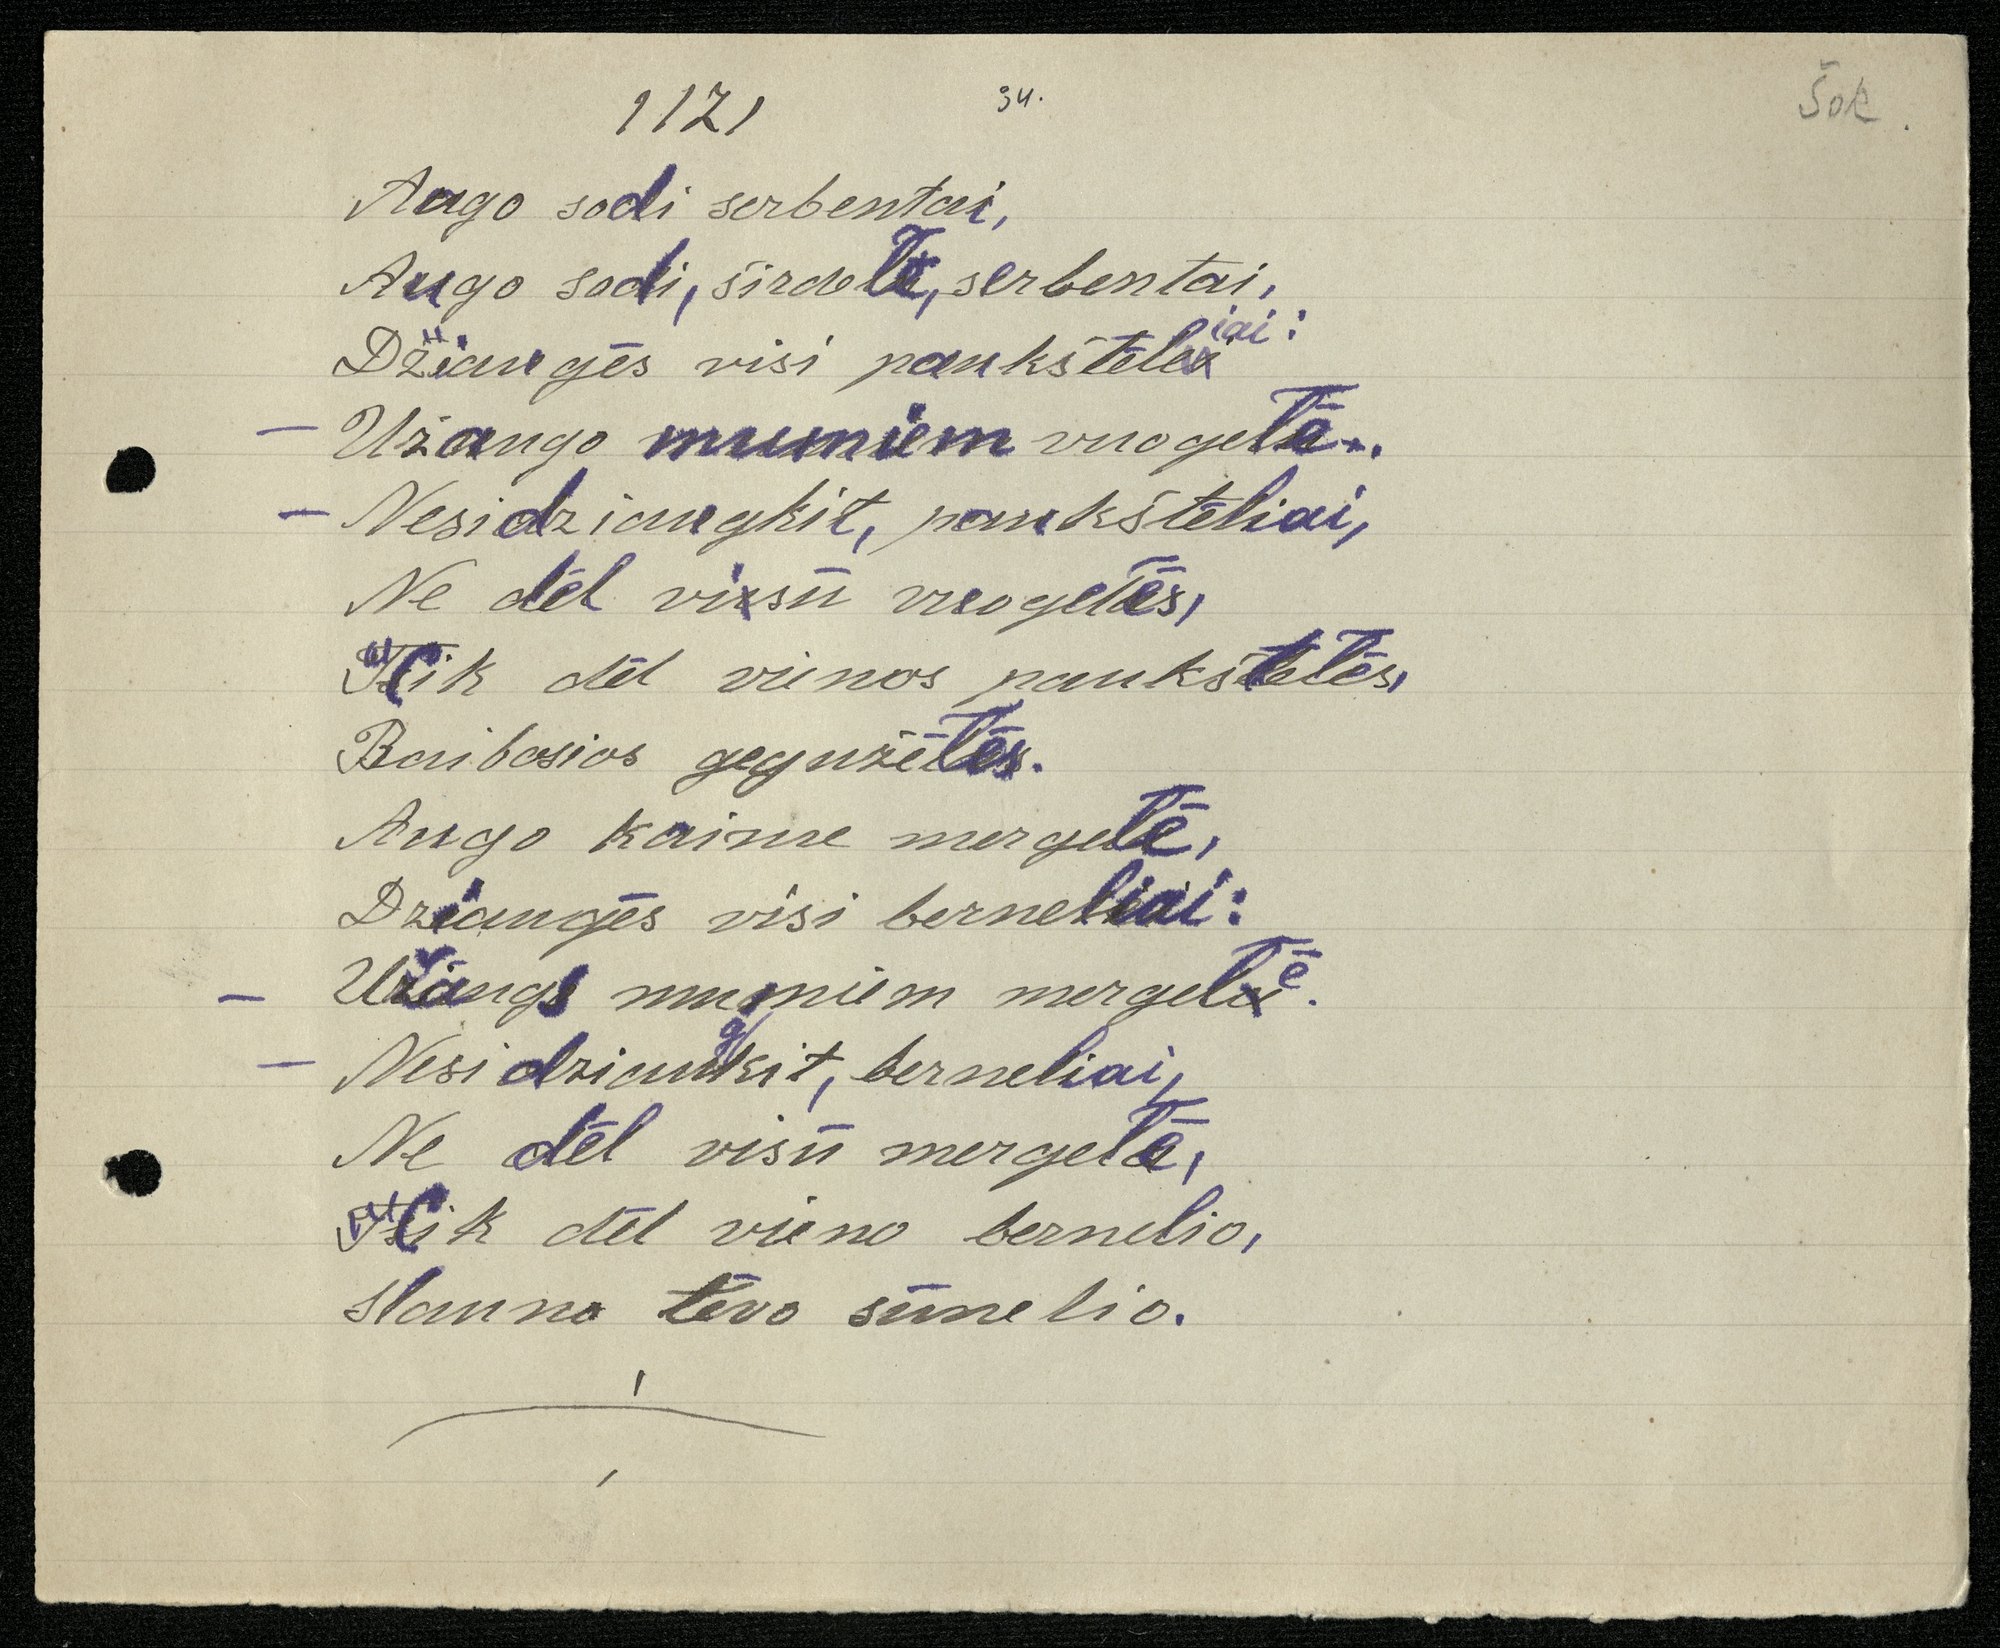 1121
34.
Šok.
Augo sodi serbentai,
Augo sodi, širdełē, serbentai,
Džiaugēs visi paukštēliai:
– Užaugo mumiem vuogełē.
– Nesidziaugkit, paukštēliai,
Ne dēl visū vuogełēs,
Cik dēl vienos paukštełēs,
Raibosios gegužēłēs.
Augo kaime mergełē,
Dziaugēs visi berneliai:
– Užaugo mumiem mergełē.
– Nesidziaugkit, berneliai,
Ne dēl visū mergełē,
Cik dēl vieno bernelio,
Slauno tēvo sūnelio.